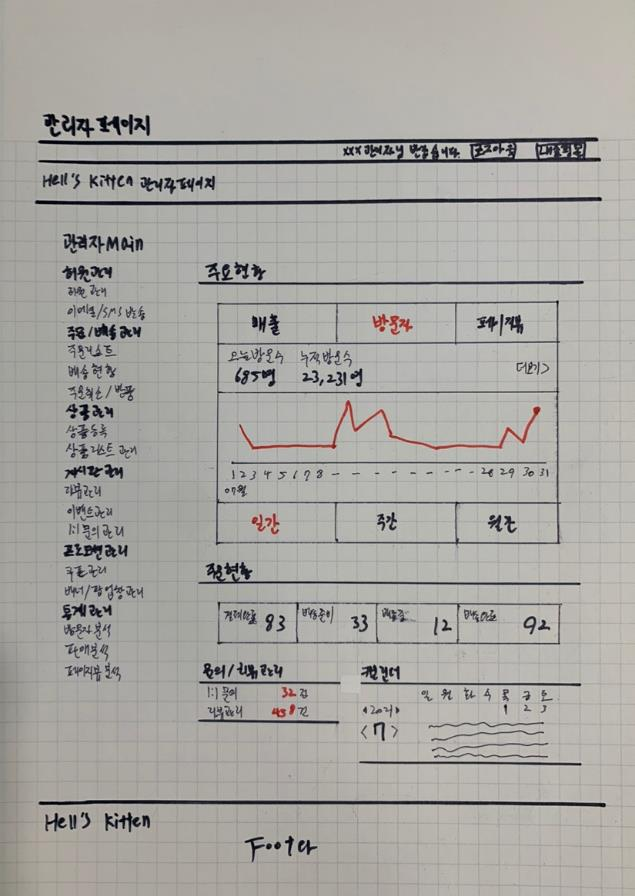 관리자 페이지
xxx 관리자님 반갑습니다. 로그아웃 내쇼핑몰
Hell's Kitten 관리자 페이지
관리자 Main
회원관리
회원 관리
이메일/SMS 발송
주문/배송관리
주문리스트
배송현황
주문취소/반품
상품관리
상품등록
상품리스트 관리
게시판 관리
리뷰관리
이벤트관리
1:1 문의 관리
프로모션 관리
쿠폰관리
배너/팝업창관리
통계관리
방문자 분석
판매분석
페이지뷰 분석
주요현황
매출 방문자 페이지뷰
오늘방문수 누적방문수
685명 23,231명 더보기>
1 2 3 4 5 6 7 8 - - - - - - - - - - 28 29 30 31
07월
일간 주간 월간
주문현황
결제완료 83 배송준비 33 배송중 12 배송완료 92
문의/리뷰 관리
1:1 문의 32건
리뷰관리 458건
캘린더
일 월 화 수 목 금 토
<2021> 1 2 3
<7>
Hell's Kitten
Footer